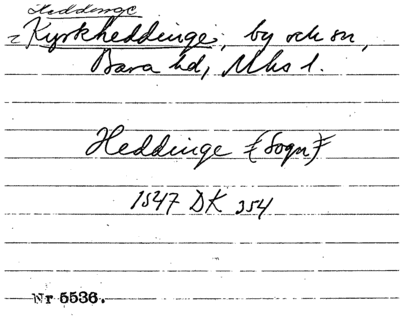 Heddinge
= Kyrkheddinge, by och sn,
Bara hd, Mhs l.
Heddinge (Sogn)
1547 DK 354
Nr 5536.